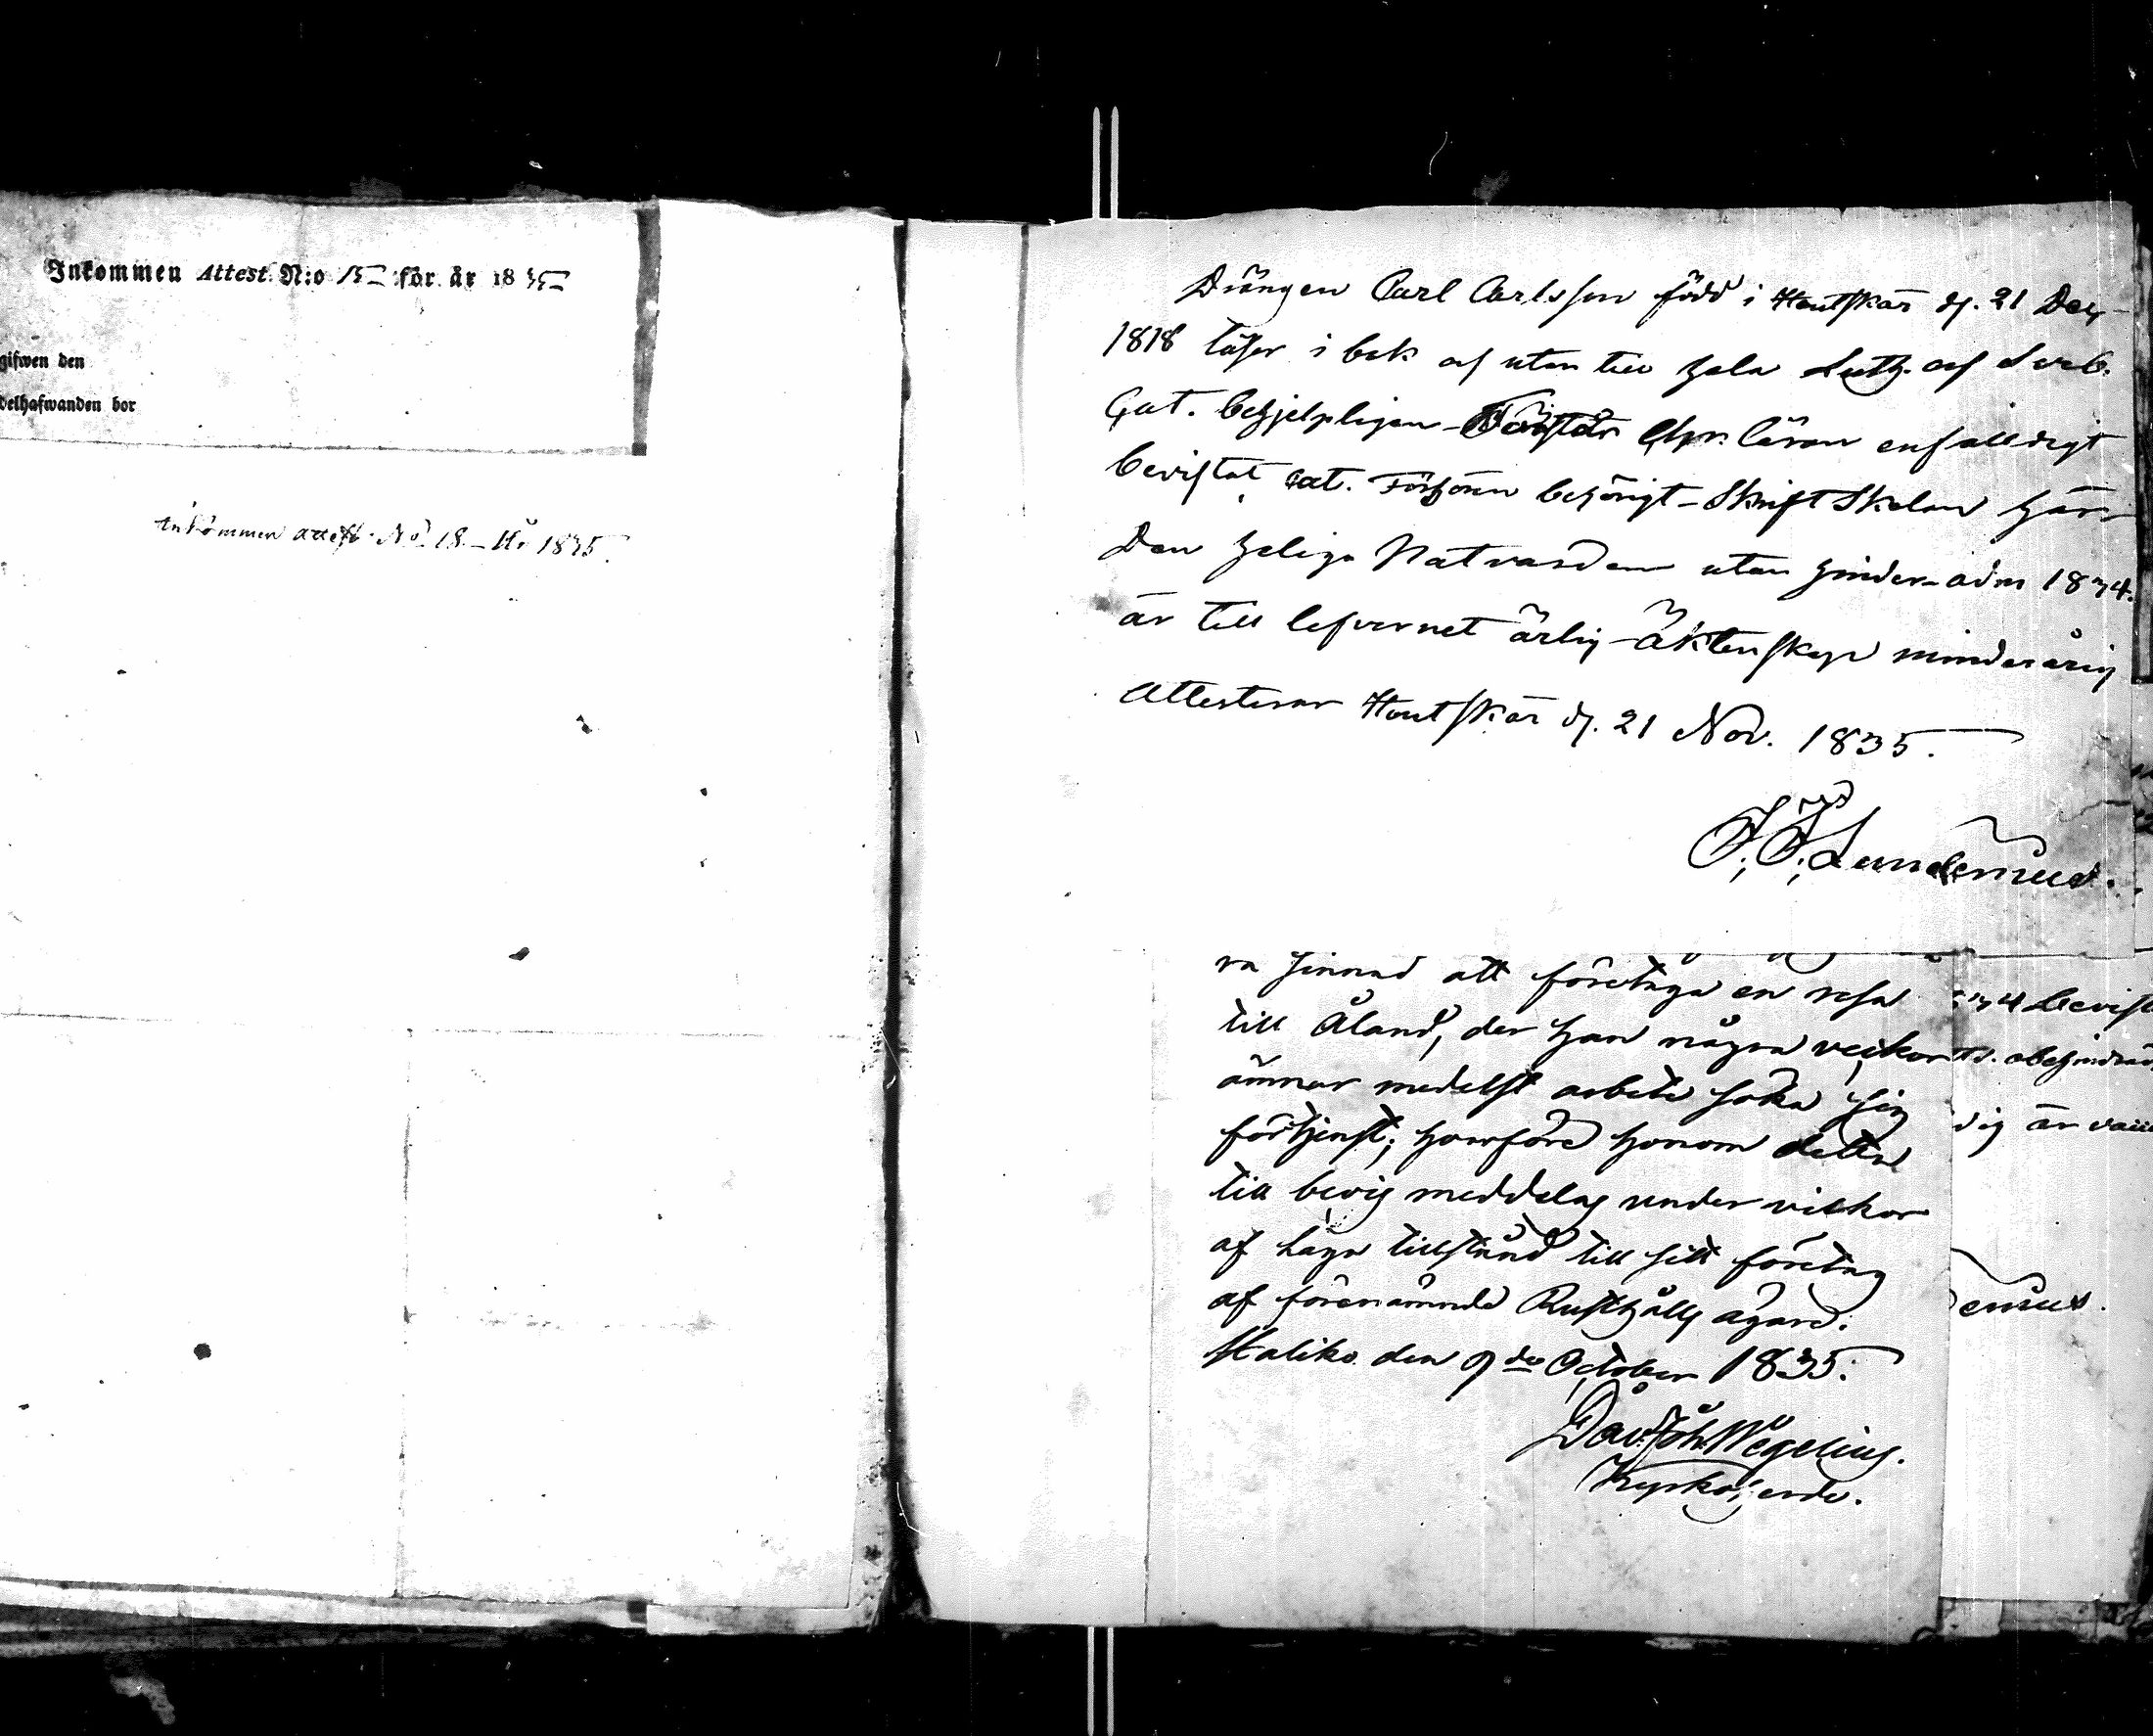 Inkommen Attest. N:o 15 för år 1835
gifwen den
delhafwanden bor
Inkommen attest. No 18 - År 1835.
Drängen Carl Carlsson född i Houtskär d. 21 Dec.
1818 läser i bok och utan till hela Luth. och Sveb.
Cat. behjelpligen - Förstår Chr. läran enfalldigt
bevistat Cat. Förhören behörigt - Skrift Skolan här
Den heliga Nattvarden utan hinder - adm 1834.
är till lefvernet ärlig - Äktenskap minderårig
Attesterar Houtskär d. 21 Nov. 1835.
ra sinnad att företaga en resa
till Åland, der han några veckor
ämnar medelst arbete söka sig
förtjenst; hvarföre honom detta
till bevis meddelas under vilkor
af laga tillstånd till sitt företag
af förenämnde Rusthålls ägare.
Haliko den 9de October 1835.
Dav. Joh. Wegelius.
Kyrkoherde.
1834 bevist
obehindrad
dig är
enius.